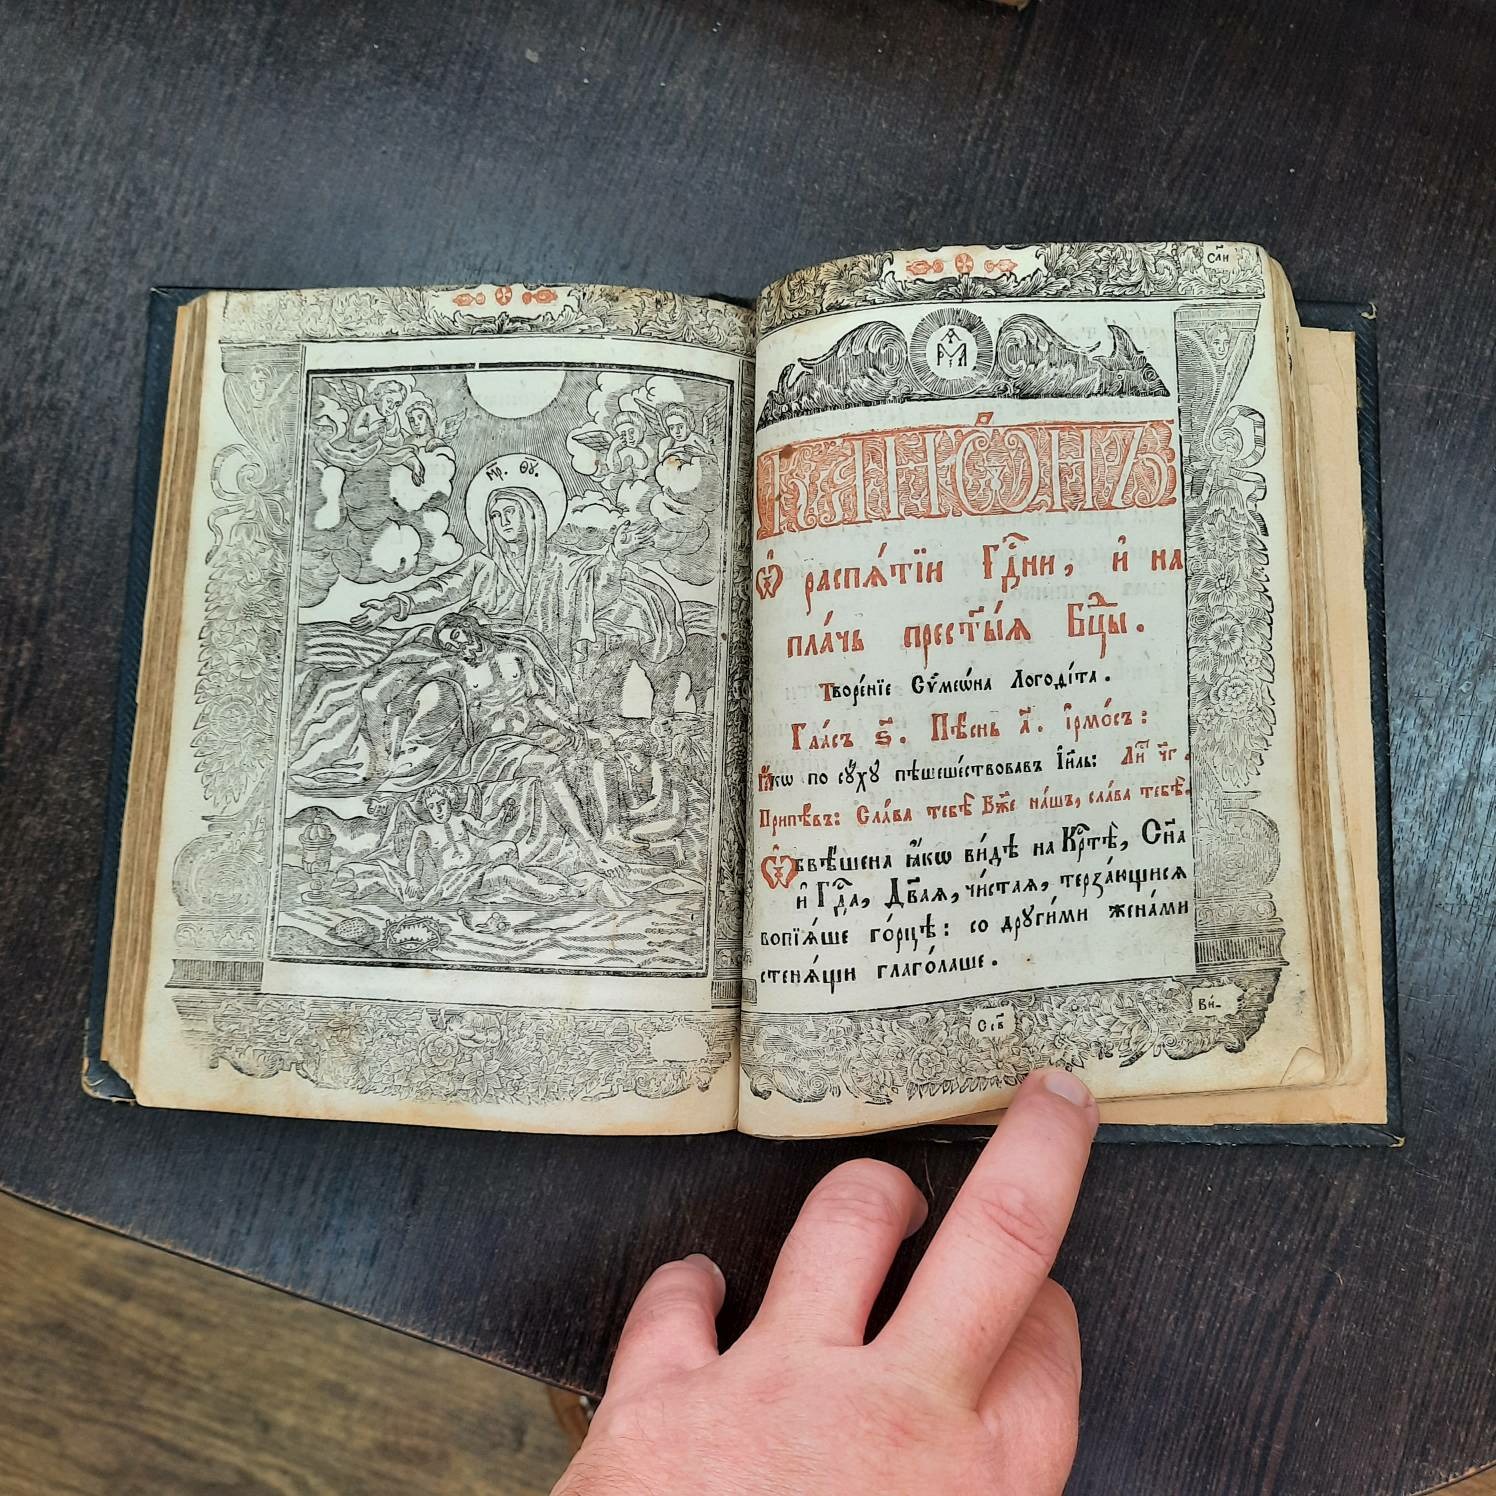 Мр҃. Ѳꙋ҃.
сли
КАНѠ́НЪ
Ѡ҆ распѧ́тїи Гд҇ни, и҆ на
пла́чь прест҃ы́ѧ Бц҃ы.
Творе́нїе Сѷмеѡ́на Логоѳі́та.
Гла́съ ѕ҃. Пѣ́снь а҃. і҆рмо́съ:
Ꙗ҆́кѡ по сꙋ́хꙋ пѣшеше́ствовавъ І҆и҃ль: Ли҃ чг.
Припѣ́въ: Сла́ва тебѣ̀ Бж҃е на́шъ, сла́ва тебѣ̀.
Ѡ҆бвѣ́шена ꙗ҆́кѡ ви́дѣ на Крⷭ҇тѣ, Сн҃а
и҆ Гд҇а, Дв҃аѧ, чи́стаѧ, терза́ющисѧ
вопїѧ́ше го́рцѣ: со дрꙋги́ми жена́ми
стенѧ́щи глаго́лаше.
Сѕ҃в
Ви-